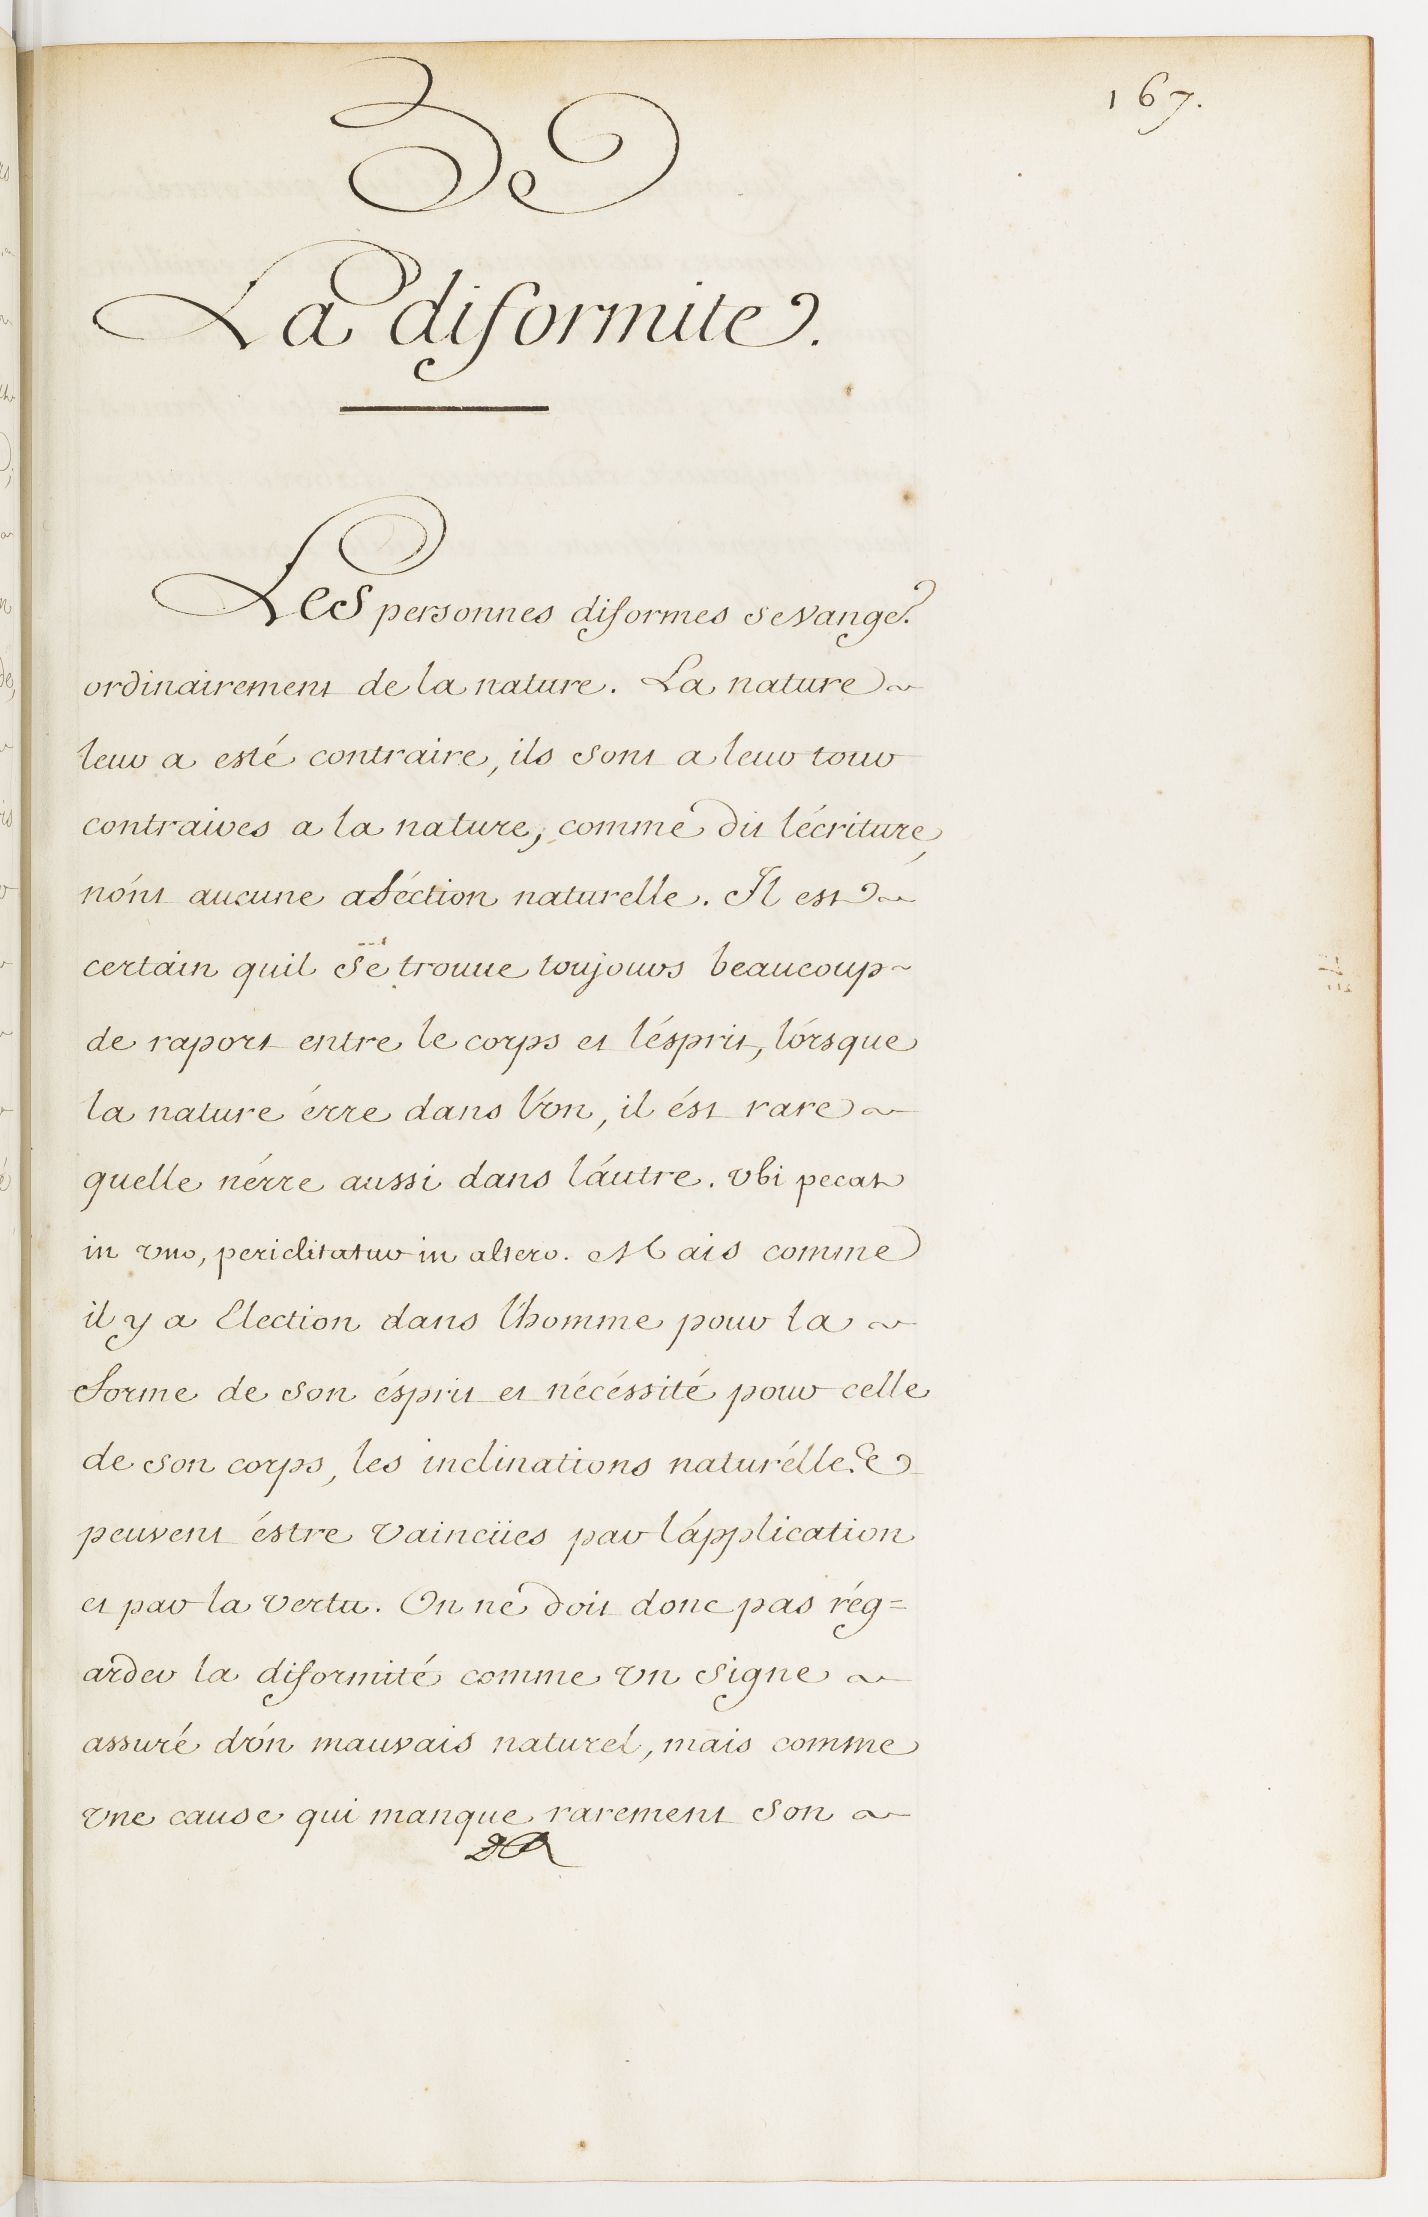 167.
De
La diformite.
Les personnes diformes se vange
ordinairement de la nature. La nature
leur a esté contraire, ils sont a leur tour
contraires a la nature, comme dit lécriture,
nónt aucune aféction naturelle. Il est
certain quil se trouue toujours beaucoup
de raport entre le corps et lésprit, lórsque
la nature érre dans lv́n, il ést rare
quelle nérre aussi dans láutre. vbi pecat
in vno, periclitatur in altero. Mais comme
il y a Election dans lhomme pour la
forme de son ésprit et nécéssité pour celle
de son corps, les inclinations naturélles
peuvent éstre vaincües par lápplication
et par la vertu. On ne doit donc pas rég=
arder la diformité comme vn signe
assuré dv́n mauvais naturél, mais comme
vne cause qui manque rarement son